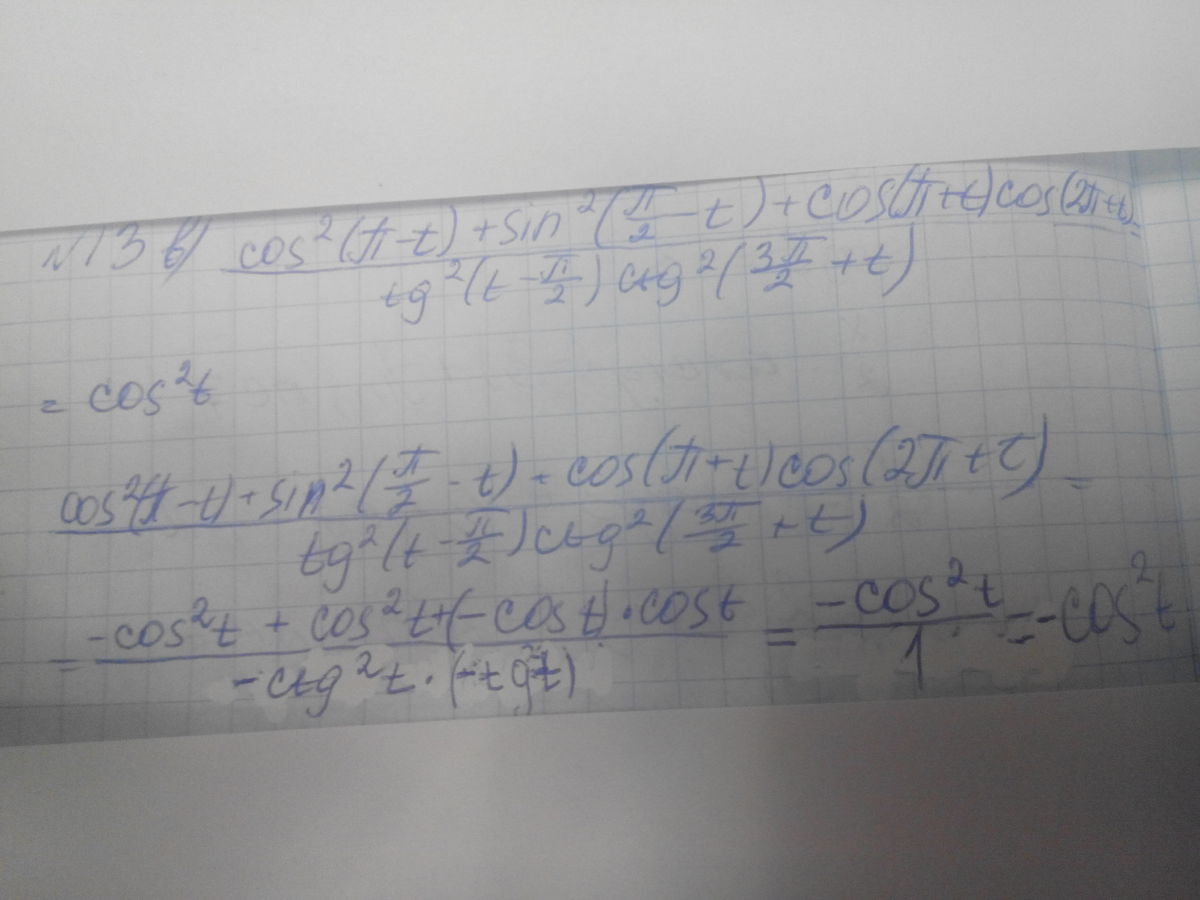 №13 в) cos²(π-t)+sin²(π/2-t)+cos(π+t)cos(2π+t) =
tg²(t-π/2)ctg²(3π/2+t)
= cos²t
cos²(π-t)+sin²(π/2-t)+cos(π+t)cos(2π+t) =
tg²(t-π/2)ctg²(3π/2+t)
= -cos²t+cos²t+(-cost)·cost = -cos²t = -cos²t
-ctg²t·(-tg²t) 1